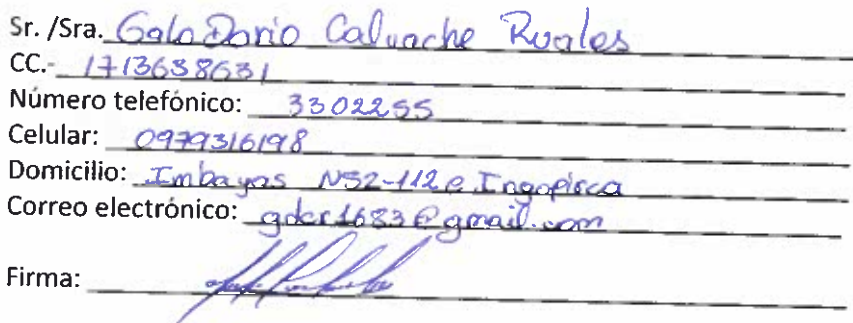 Sr. /Sra. Galo Dario Calvache Ruales
CC.- 1713638631
Número telefónico: 3302255
Celular: 0979316198
Domicilio: Imbayas N52-112 e Ingapirca
Correo electrónico: gdcr1683@gmail.com
Firma: